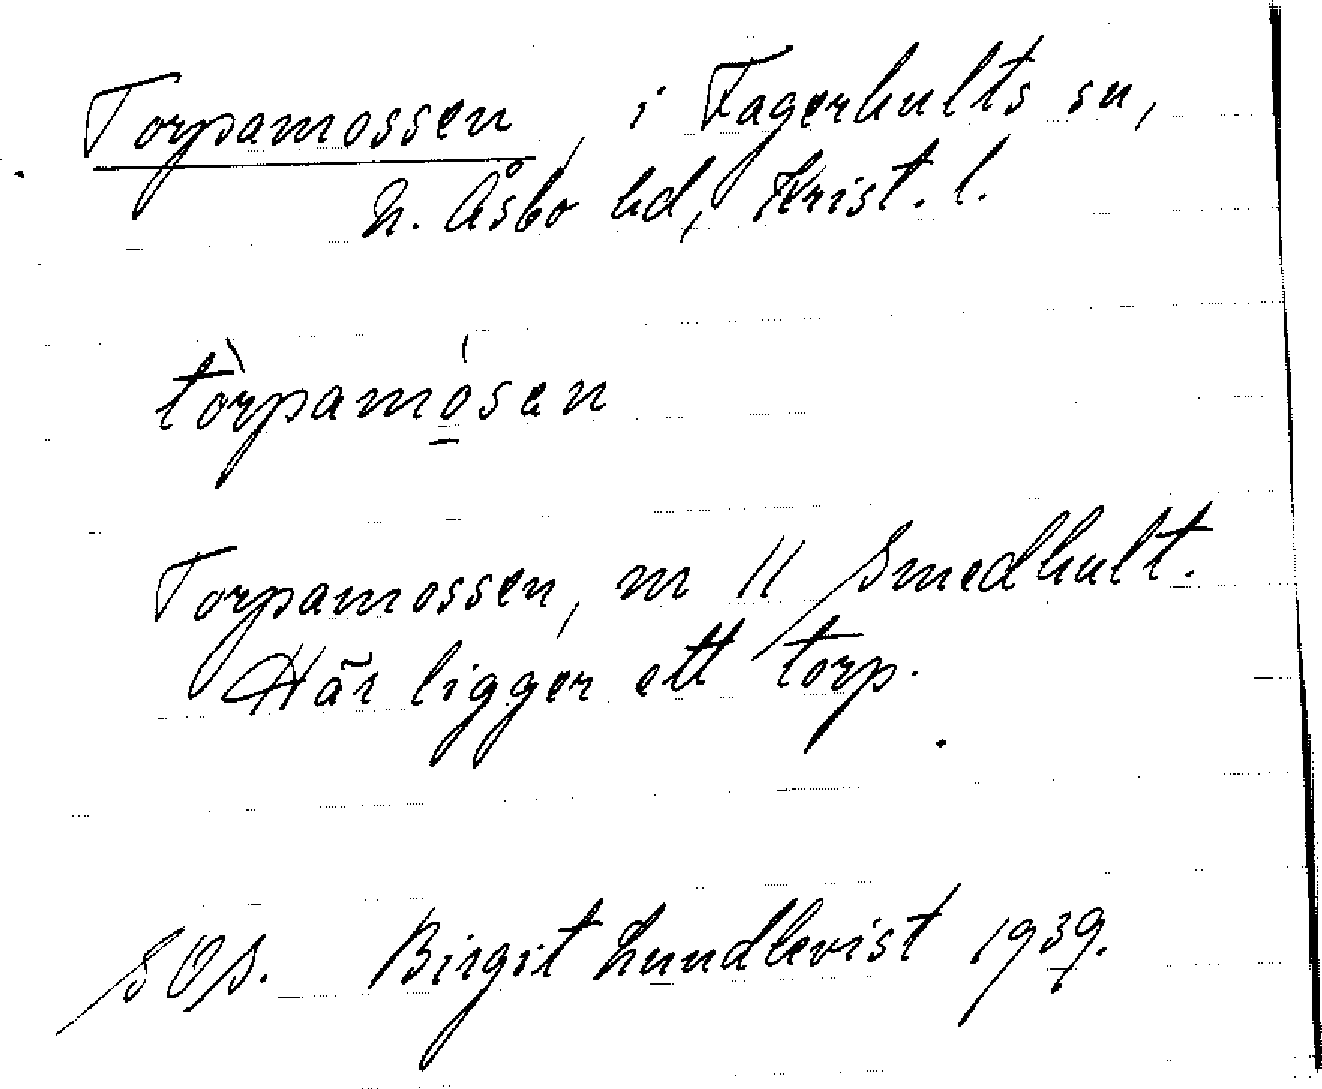 Torpamossen, i Fagerhults sn,
N. Åsbo hd, Krist. l.
tòrpamósen
Torpamossen, m 11 Smedhult.
Här ligger ett torp.
SOS. Birgit Lundkvist 1939.